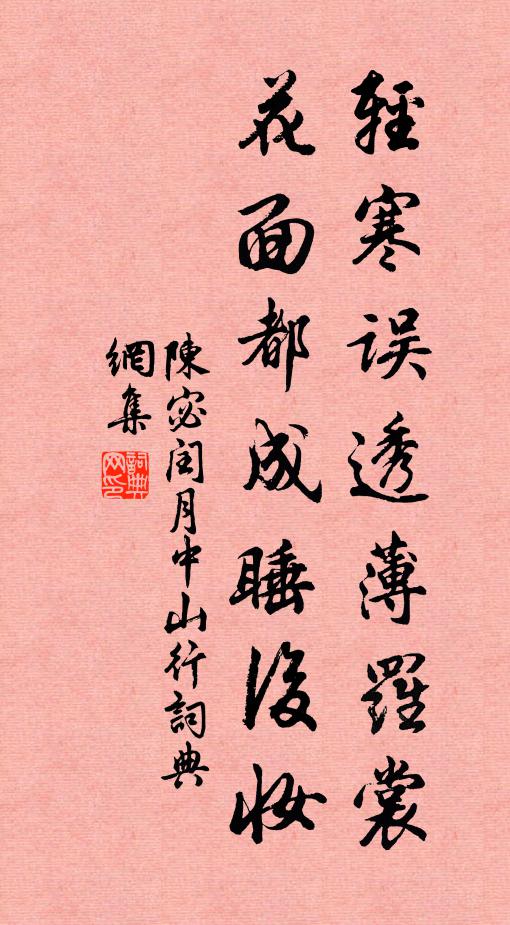 輕寒誤透薄羅裳
花面都成睡後妝
陳宓閏月中山行詞典
網集
詞典
网印